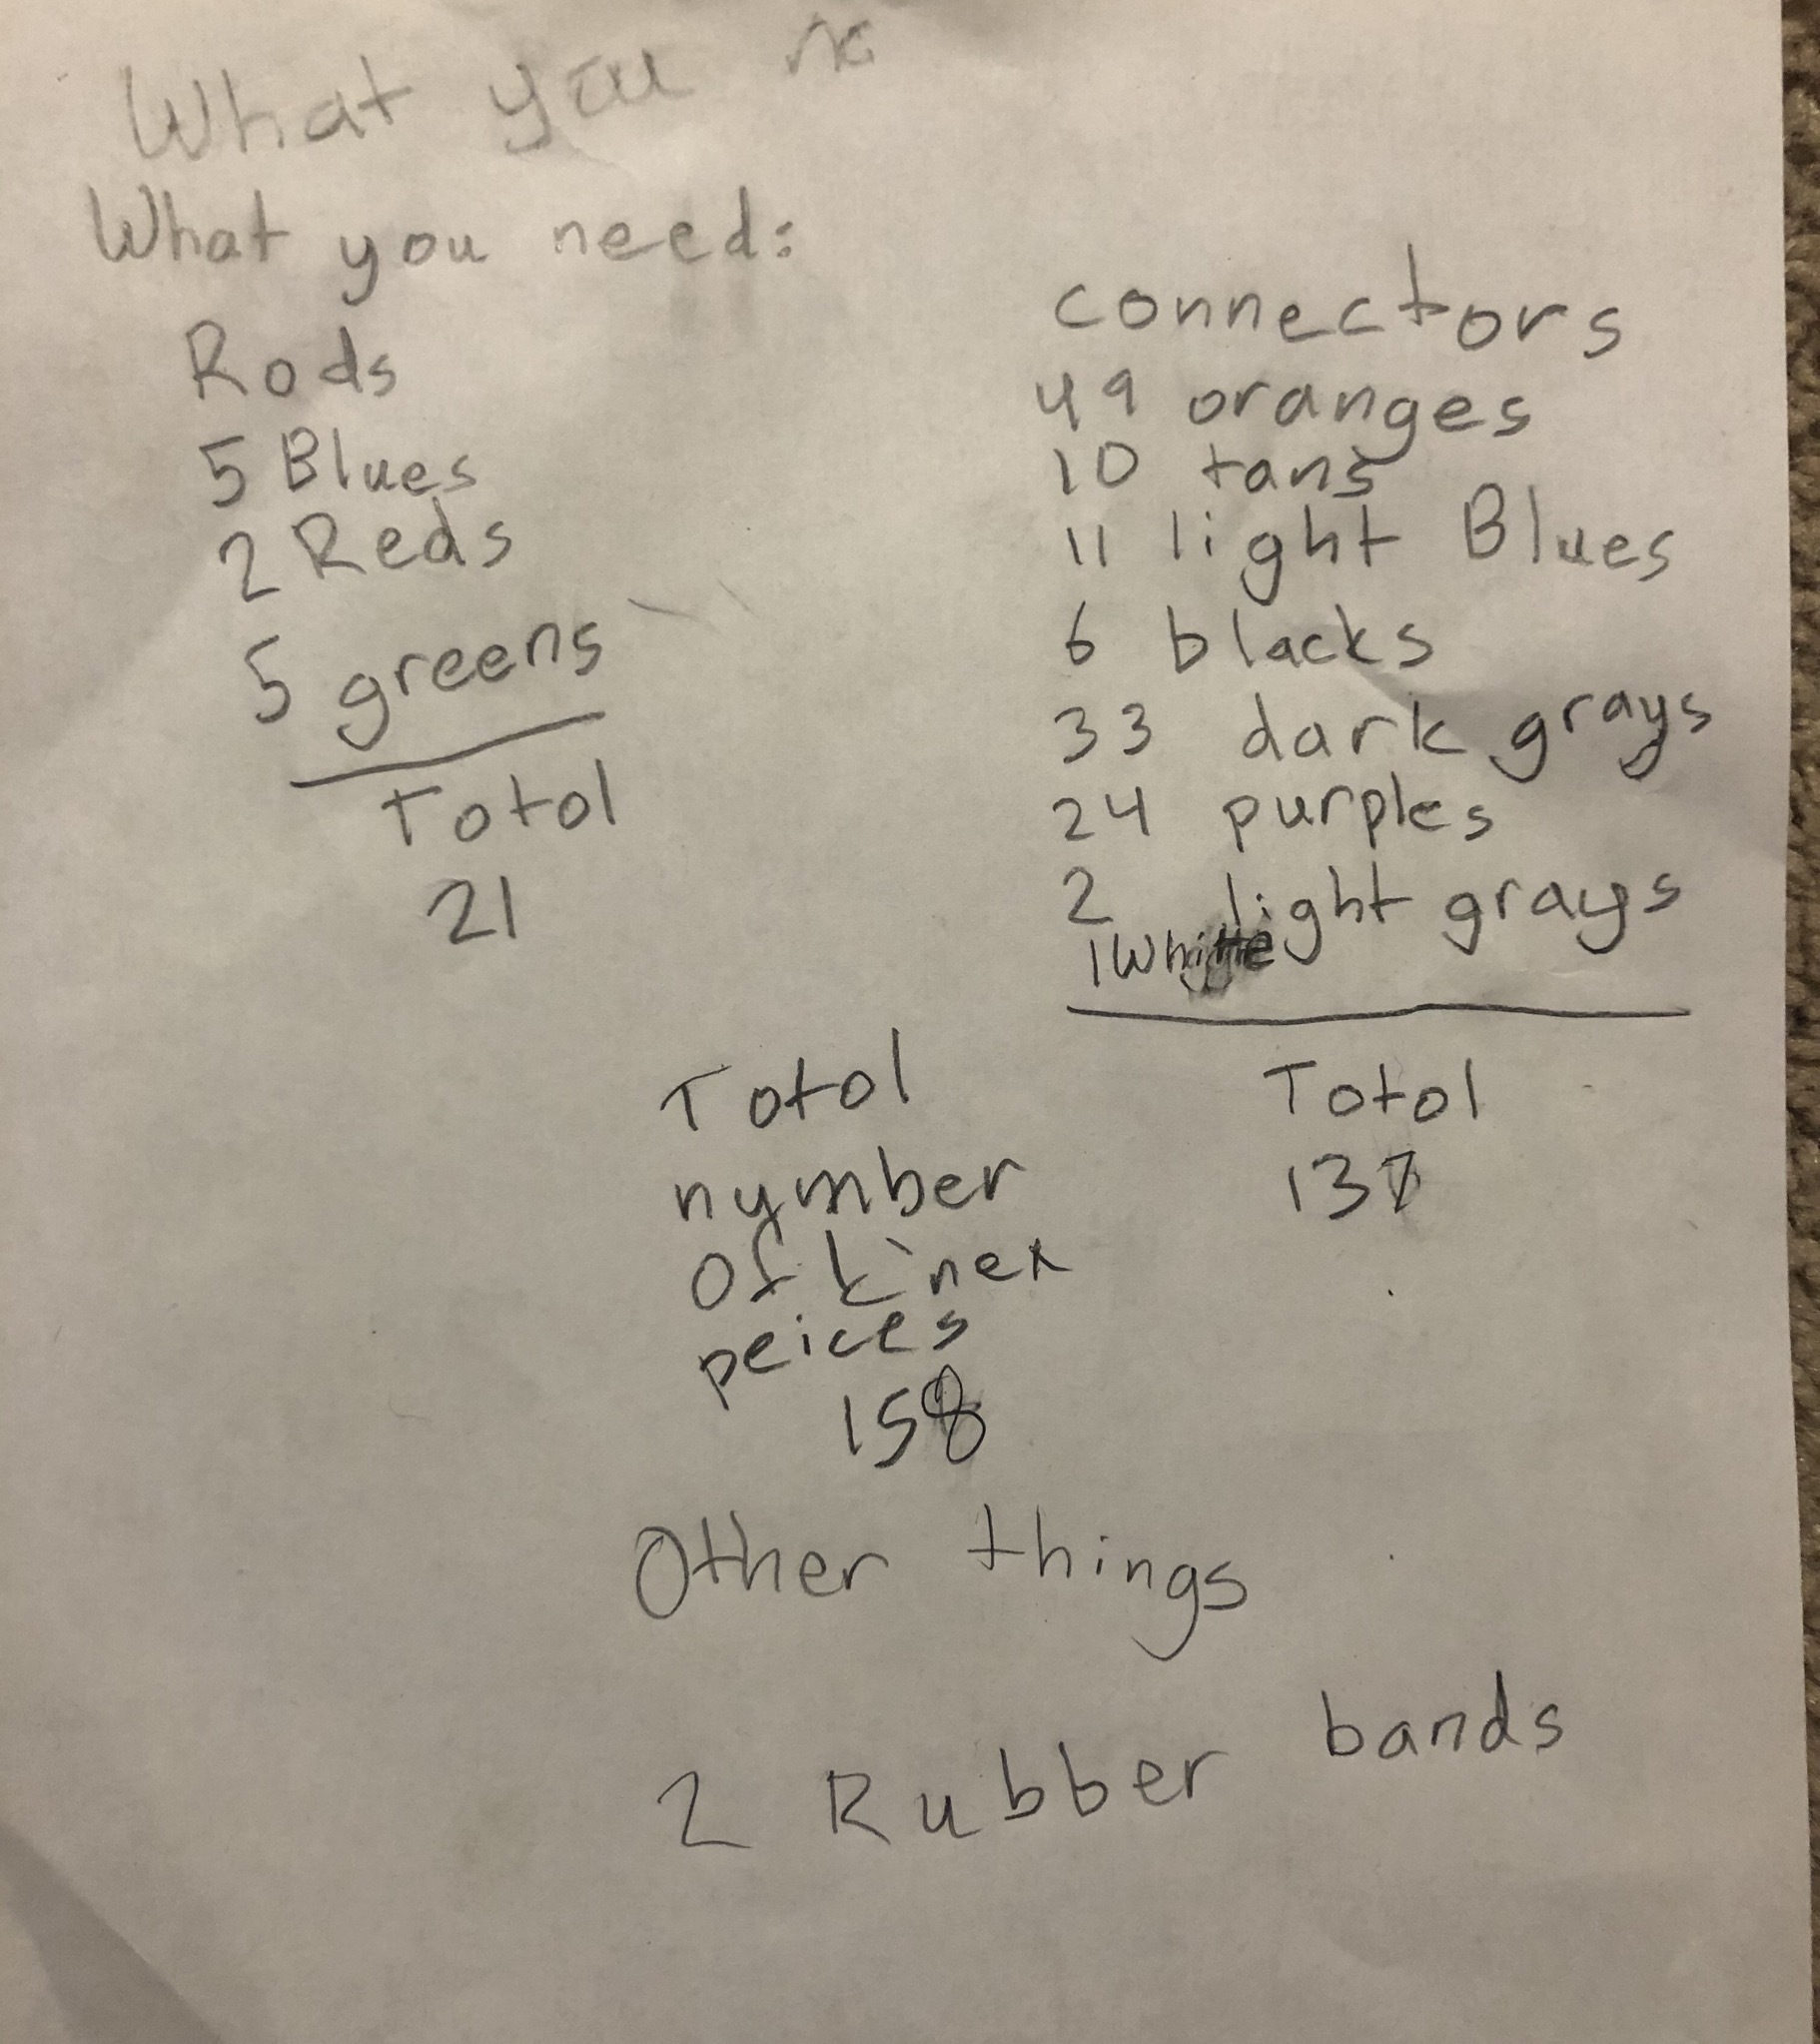 What you
What you need:
Rods
5 Blues
2 Reds
5 greens
Totol
21
connectors
49 oranges
10 tans
11 light Blues
6 blacks
33 dark grays
24 purples
2 light grays
1 White
Totol
137
Totol
nymber
Of k'nex
peices
158
Other things
2 Rubber bands